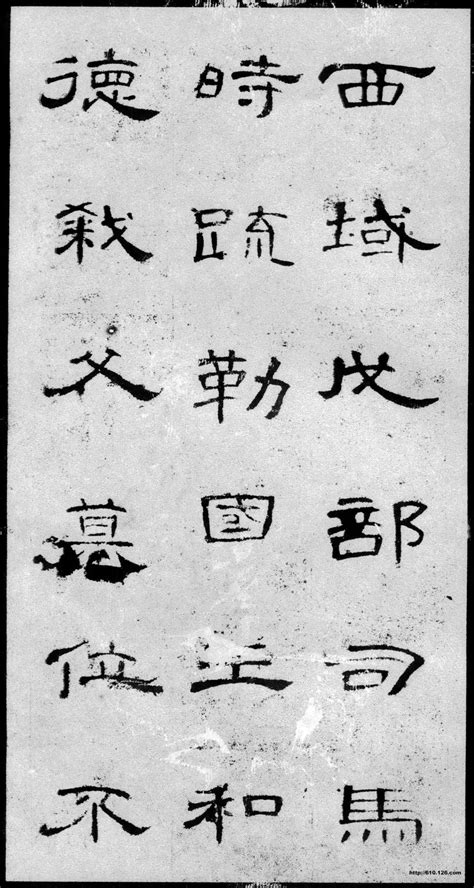 西域戊部司馬
時疏勒國王和
德弒父篡位不
http://610.126.com